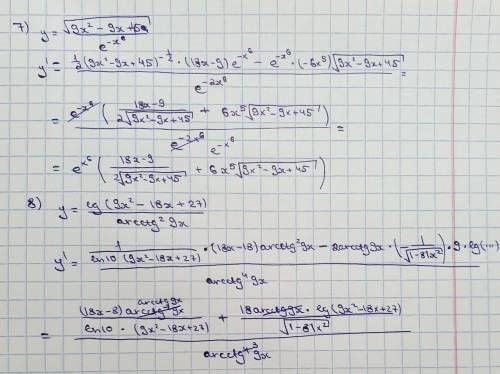 7) y = √(9x² - 9x + 5) / e^(-x⁶)
y' = ½(9x²-9x+45)^(-½) · (18x-9) e^(-x⁶) - e^(-x⁶) · (-6x⁵) √(9x²-9x+45) / e^(-2x⁶) =
= e^(-x⁶) ( (18x-9) / (2√(9x²-9x+45)) + 6x⁵ √(9x²-9x+45) ) / e^(-2x⁶) e^(-x⁶) =
= e^(x⁶) ( (18x-9) / (2√(9x²-9x+45)) + 6x⁵ √(9x²-9x+45) )
8) y = lg(9x² - 18x + 27) / arcctg² 9x
y' = 1 / (ln10 (9x²-18x+27)) · (18x-18) arcctg² 9x - 2arcctg 9x · (-1/√(1-81x²)) · 9 · lg(...) / arcctg⁴ 9x
= (18x-8) arcctg² 9x arcctg 9x / (ln10 · (9x²-18x+27)) + 18 arcctg 9x · lg(9x²-18x+27) / √(1-81x²) / arcctg⁴ ³ 9x